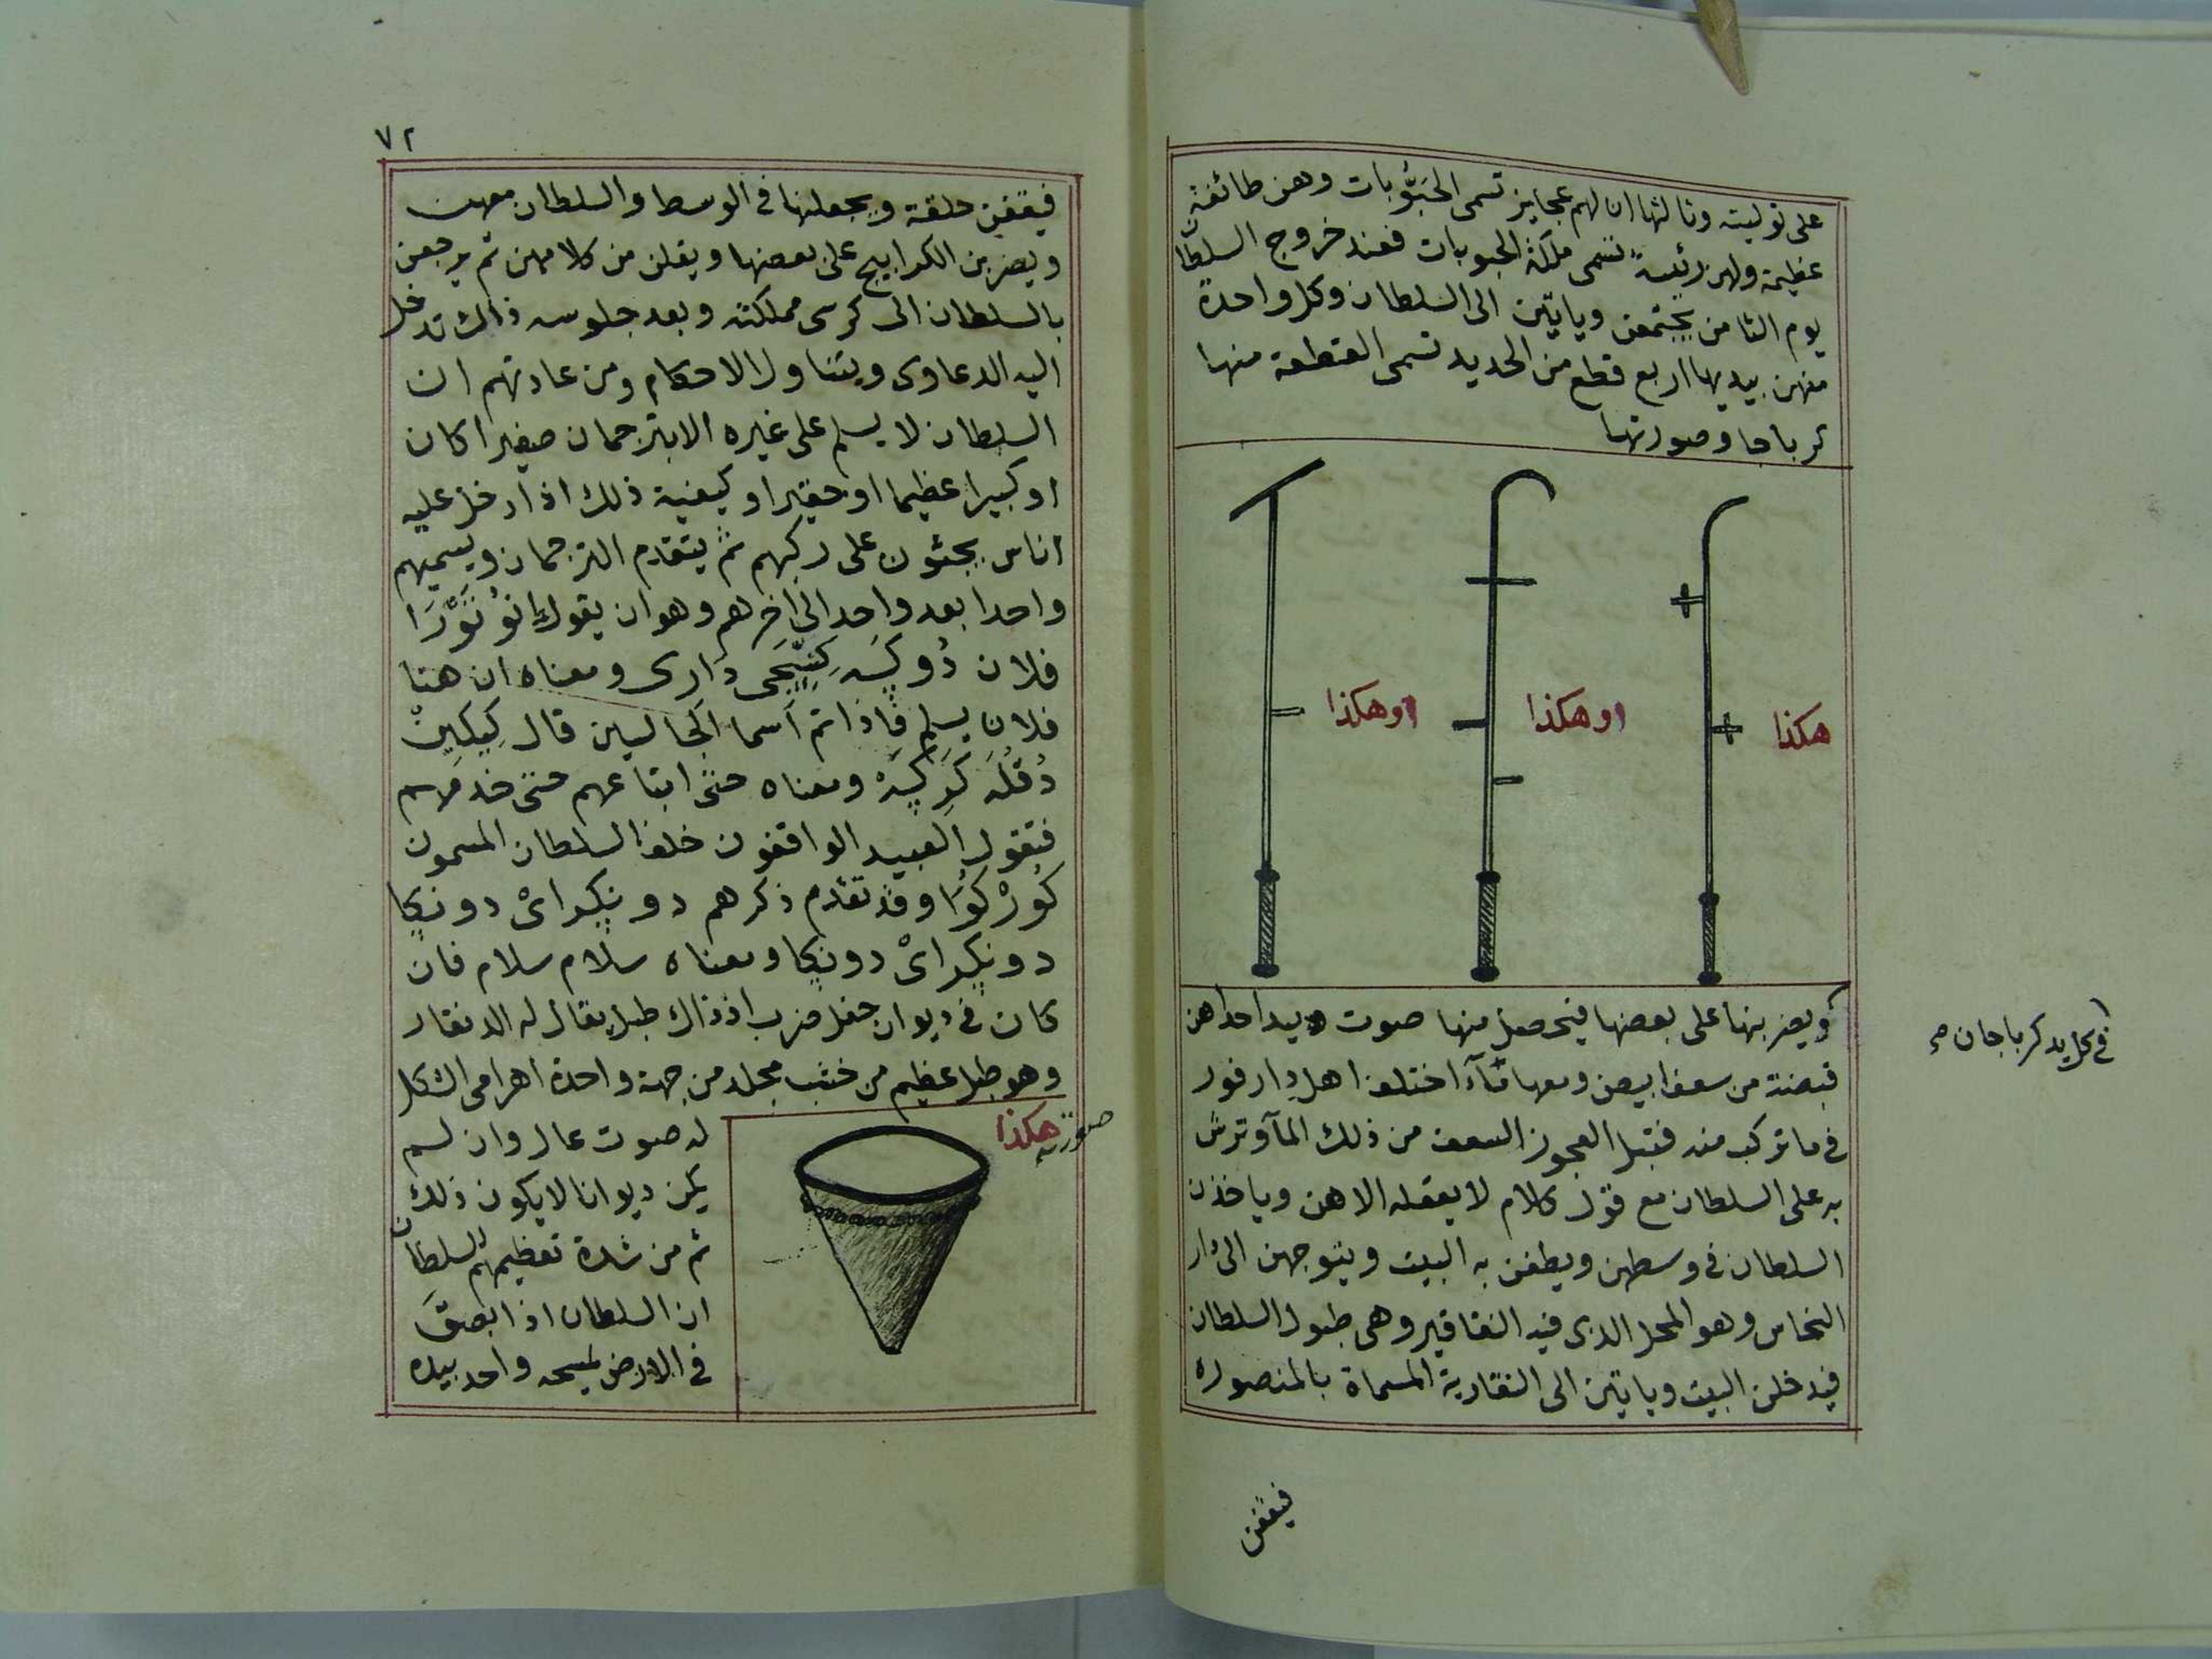 على توليته وثالثها ان لهم عجايز تسمى الحَبُّوبات وهن طائفة
عظيمة ولهن رئيسة تسمى ملكة الحبوبات فعند خروج السلطان
يوم الثامن يجتمعن وياتين الى السلطان وكل واحدة
منهن بيديها اربع قطع من الحديد تسمى القطعة منها
كرباجا وصورتها
هكذا
اوهكذا
اوهكذا
ويضربنها على بعضها فيحصل منها صوت وبيد احداهن
في كل يد كرباجان صح
قبضة من سعف ابيض ومعها مآء اختلف اهل دارفور
في ما تركب منه فتبل العجوز السعف من ذلك المآ وترش
به على السلطان مع قول كلام لا يعقله الا هن وياخذن
السلطان في وسطهن ويطفن به البيت ويتوجهن الى دار
النحاس وهو المحل الذى فيه النقاقير وهى طبول السلطان
فيدخلن البيت وياتين الى النقارية المسماة بالمنصوره
فيقفن
٧٢
فيقفن حلقة ويجعلنها في الوسط والسلطان معهن
ويضربن الكرابيج على بعضها ويقلن من كلامهن ثم يرجعن
بالسلطان الى كرسى مملكته وبعد جلوسه ذاك تدخل
اليه الدعاوى ويتناول الاحكام ومن عادتهم ان
السلطان لا يسلم على غيره الا بترجمان صغيرا كان
او كبيرا عظيما او حقيرا وكيفية ذلك اذا دخل عليه
اناس يجثون على ركبهم ثم يتقدم الترجمان ويسميهم
واحدا بعد واحد الى اخرهم وهو ان يقول
فلان دارى ومعناه ان هنا
فلان يسلم فاذا تم اسما الجالسين قال
ومعناه حتى اتباعهم حتى خدمهم
فتقول العبيد الواقفون خلف السلطان المسمون
كُوْرْكُوَا وقد تقدم ذكرهم دونكراىْ دونكا
دونكراىْ دونكا ومعناه سلام سلام فان
كان في ديوان حفل ضرب اذ ذاك طبل يقال له الدنقار
وهو طبل عظيم من خشب مجلد من جهة واحدة اهرامى الشكل
صورته هكذا
له صوت عال وان لم
يكن ديوانا لا يكون ذلك
ثم من شدة تعظيمهم للسلطان
ان السلطان اذا بصق
في الارض يمسحه واحد بيده